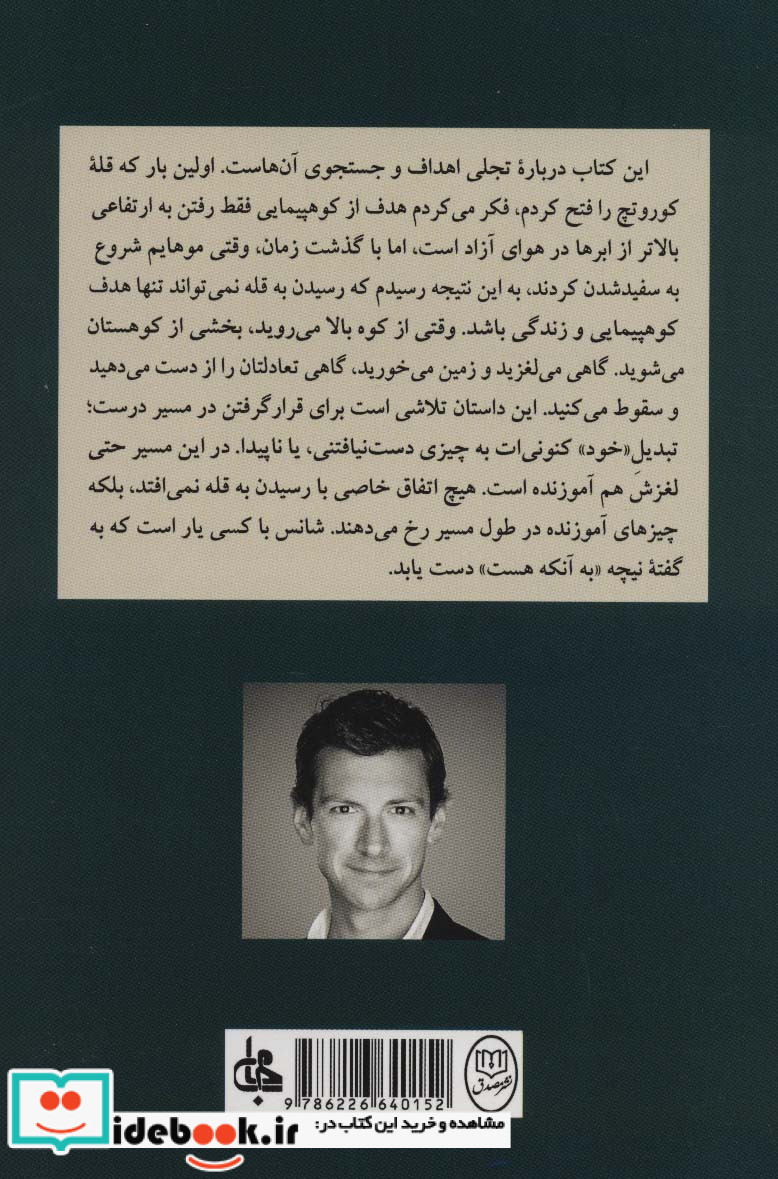 این کتاب دربارهٔ تجلی اهداف و جستجوی آن‌هاست. اولین بار که قلهٔ
کوروتچ را فتح کردم، فکر می‌کردم هدف از کوهپیمایی فقط رفتن به ارتفاعی
بالاتر از ابرها در هوای آزاد است، اما با گذشت زمان، وقتی موهایم شروع
به سفیدشدن کردند، به این نتیجه رسیدم که رسیدن به قله نمی‌تواند تنها هدف
کوهپیمایی و زندگی باشد. وقتی از کوه بالا می‌روید، بخشی از کوهستان
می‌شوید. گاهی می‌لغزید و زمین می‌خورید، گاهی تعادلتان را از دست می‌دهید
و سقوط می‌کنید. این داستان تلاشی است برای قرارگرفتن در مسیر درست؛
تبدیلِ «خود» کنونی‌ات به چیزی دست‌نیافتنی، یا ناپیدا. در این مسیر حتی
لغزش هم آموزنده است. هیچ اتفاق خاصی با رسیدن به قله نمی‌افتد، بلکه
چیزهای آموزنده در طول مسیر رخ می‌دهند. شانس با کسی یار است که به
گفتهٔ نیچه «به آنکه هست» دست یابد.
جامی
نشر مصدق
9 786226 640152
مشاهده و خرید این کتاب در:
idebook.ir